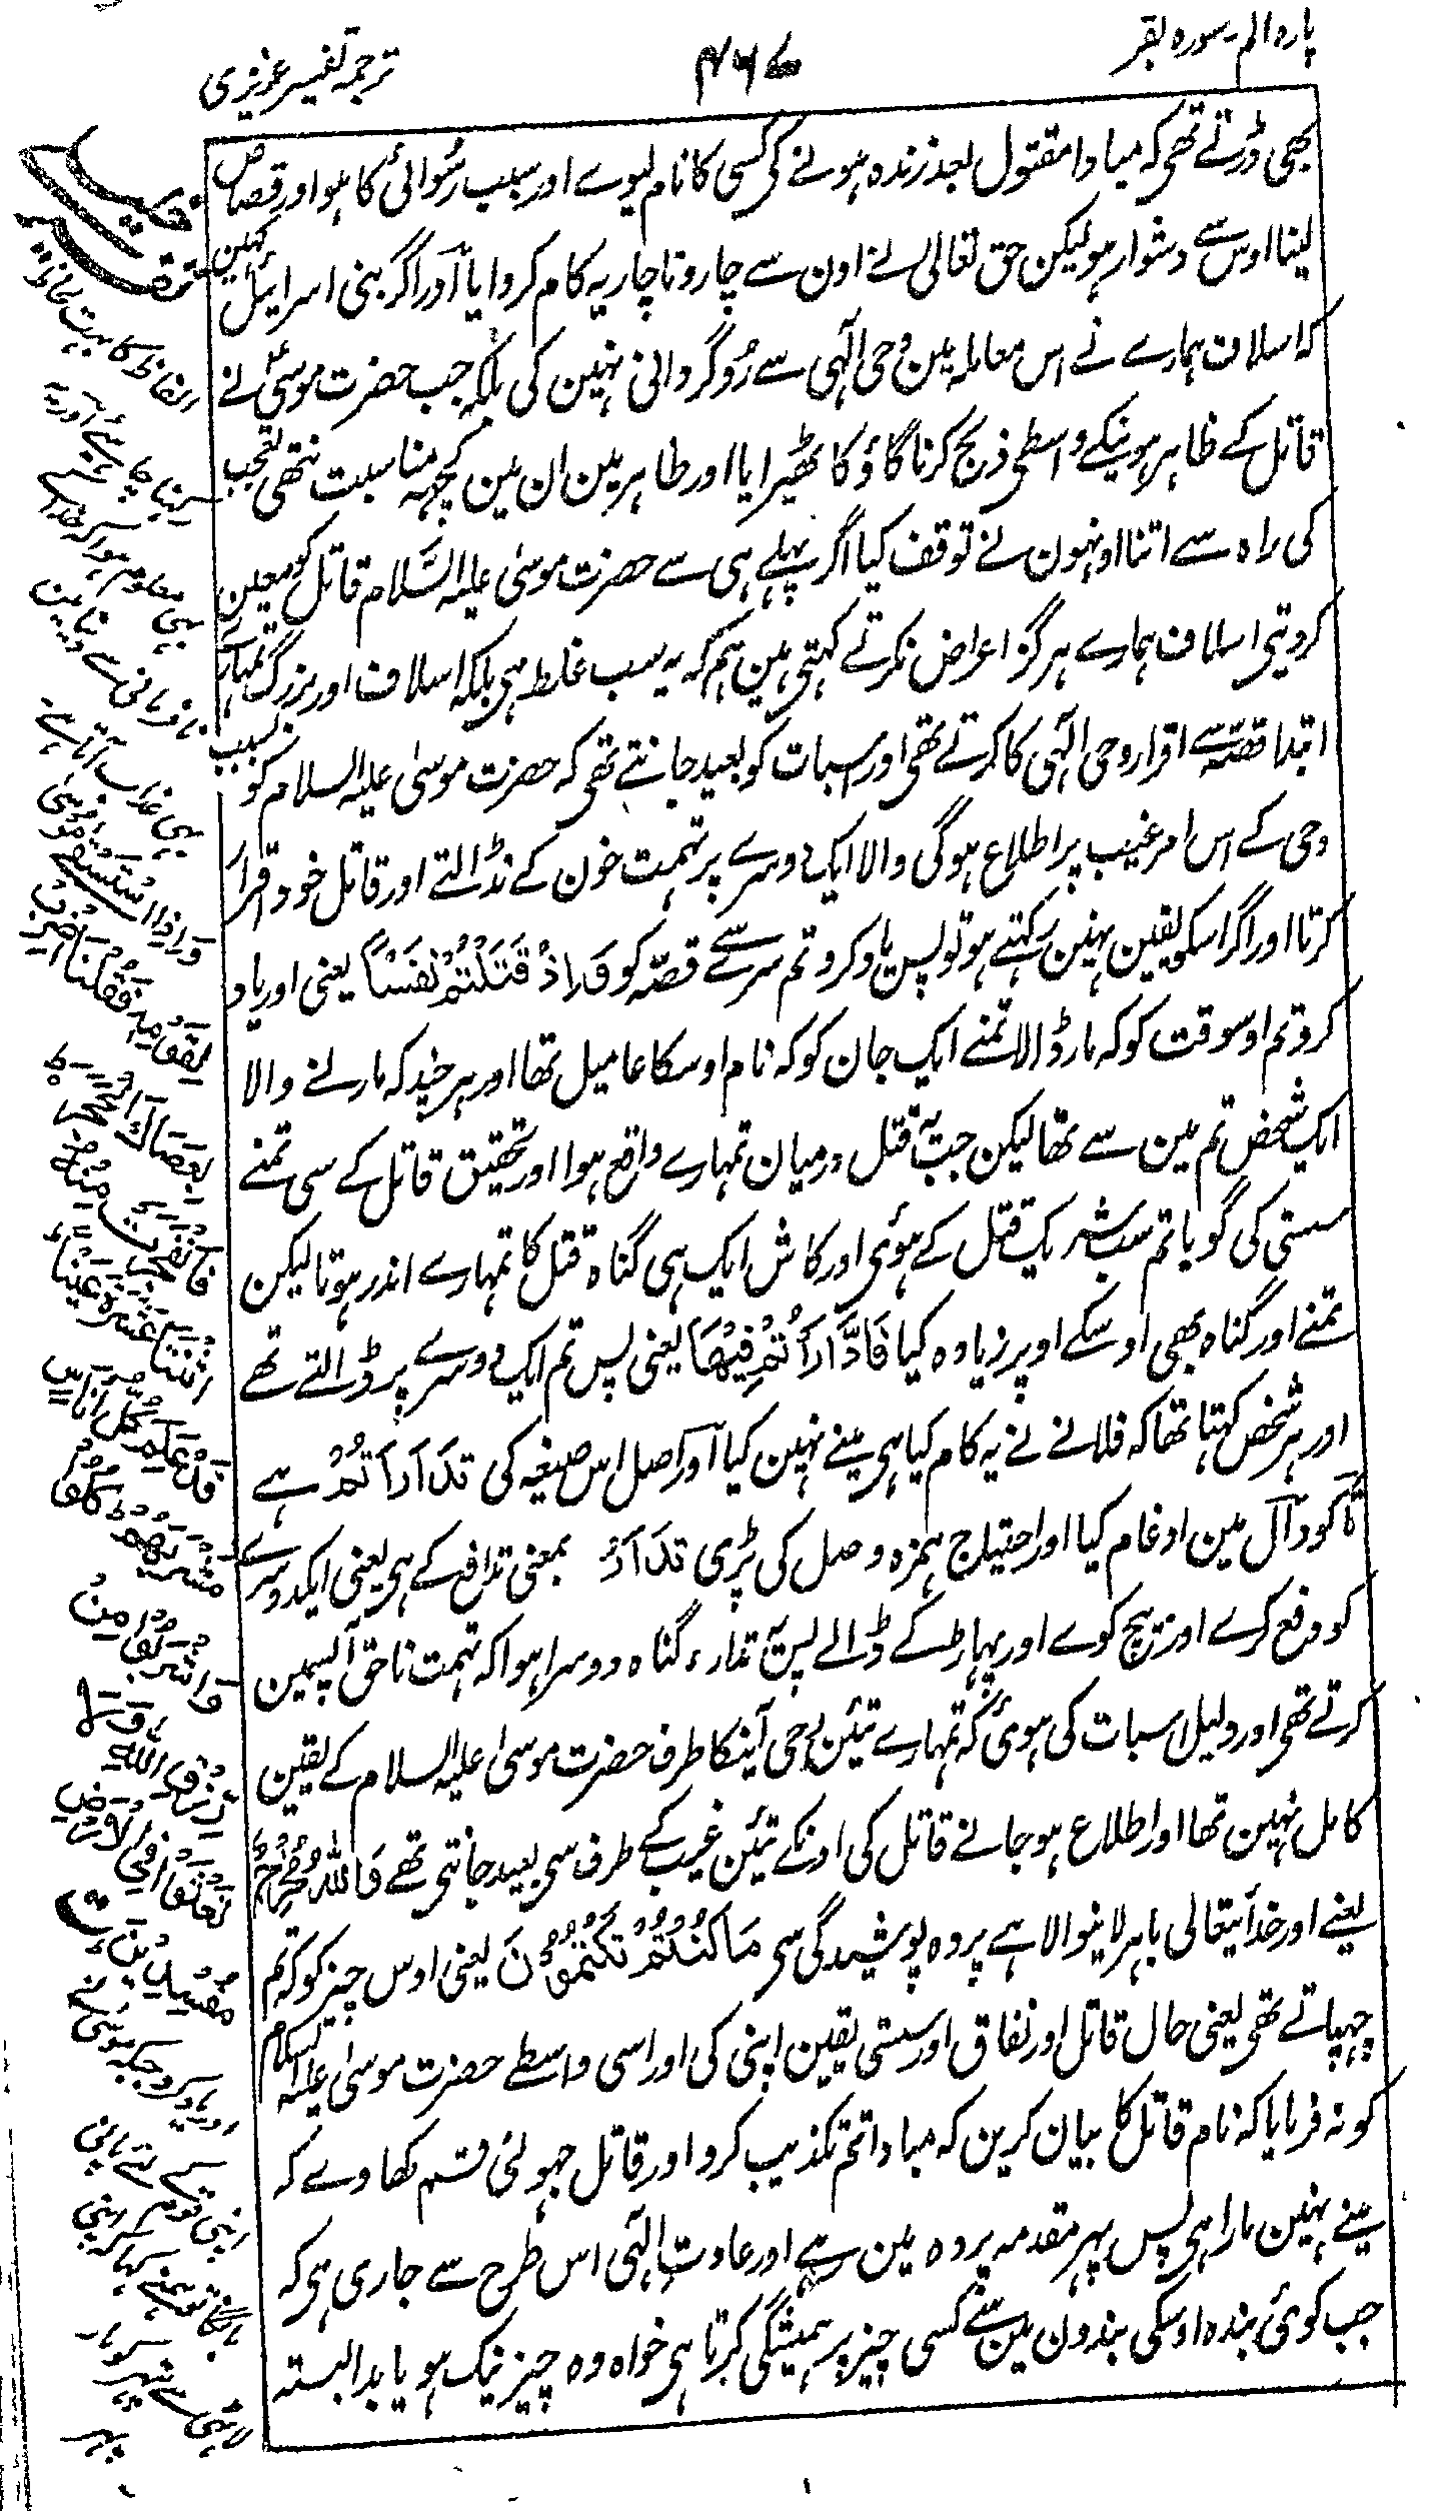 پارہ الم۔ سورہ بقر
۴۶۷
ترجمہ تفسیر عزیزی
بھی ڈرتے تھی کہ مبادا مقتول بعد زندہ ہونے کی کسی کا نام لیوے اور سبب رُسوائی کا ہو اور قصاص
لینا اوس سے دشوار ہو لیکن حق تعالی نے اون سے چار و ناچار یہ کام کروایا اور اگر بنی اسرائیل کہین
کہ اسلاف ہمارے نے اس معاملہ مین وحی الٰہی سے رُوگردانی نہین کی بلکہ جب حضرت موسیٰؑ نے
قاتل کے ظاہر ہونیکے واسطی ذبح کرنا گاؤ کا ٹھیرایا اور ظاہر مین ان مین کچھہ مناسبت نتھی تعجب
کی راہ سے اتنا اونہون نے توقف کیا اگر پہلے ہی سے حضرت موسیٰ علیہ السَّلام قاتل کو معین
کردیتی اسلاف ہمارے ہرگز اعراض نکرتے کہتی ہین ہم کہ یہ سب غلط ہی بلکہ اسلاف اور بزرگ تمہارے
ابتدا قصّہ سے اقرار وحی الٰہی کا کرتے تھی اور اسبات کو بعید جانتے تھی کہ حضرت موسیٰ علیہ السلام کو بسبب
وحی کے اس امر غیب پر اطلاع ہوگی والا ایک دوسرے پر تہمت خون کے نڈالتے اور قاتل خود اقرار
کرتا اور اگر اسکو یقین نہین رکہتے ہو تو پس یاد کرو تم سرے سے قصّہ کو وَاِذْ قَتَلْتُمْ نَفْسًا یعنی اور یاد
کرو تم اوسوقت کو کہ مار ڈالا تمنے ایک جان کو کہ نام اوسکا عامیل تھا اور ہر چند کہ مارنے والا
ایک شخص تم مین سے تھا لیکن جب یہ قتل درمیان تمہارے واقع ہوا اور تحقیق قاتل کے سی تمنے
سستی کی گویا تم سب شریک قتل کے ہوئی اور کاش ایک ہی گناہ قتل کا تمہارے اندر ہوتا لیکن
تمنے اور گناہ بھی اوسکے اوپر زیادہ کیا فَادَّارَاْتُمْ فِیْھَا یعنی پس تم ایک دوسرے پر ڈالتے تھے
اور ہر شخص کہتا تھا کہ فلانے نے یہ کام کیا ہی مینے نہین کیا اور اصل اس صیغہ کی تَدَارَاْتُمْ ہے
تا کو دال مین ادغام کیا اور احتیاج ہمزہ وصل کی پڑی تَدَارُءْ بمعنی تدافع کے ہی یعنی ایک دوسرے
کو دفع کرے اور بیچ کوے اور پہاڑ کے ڈالے پس یہ تدارء گناہ دوسرا ہوا کہ تہمت ناحق آپسمین
کرتے تھی اور دلیل اسبات کی ہوئی کہ تمہارے تئین وحی آنیکا طرف حضرت موسیٰ علیہ السلام کے یقین
کامل نہین تھا اور اطلاع ہوجانے قاتل کی اونکے تئین غیب کے طرف سی بعید جانتی تھے وَاللّٰہُ مُخْرِجٌ
یعنے اور خدا یتعالی باہر لانیوالا ہے پردہ پوشیدگی سی مَا کُنْتُمْ تَکْتُمُوْنَ یعنی اوس چیز کو کہ تم
چہپاتے تھی یعنی حال قاتل اور نفاق اور سستی یقین اپنی کی اور اسی واسطے حضرت موسیٰ علیہ السلام
کو نہ فرمایا کہ نام قاتل کا بیان کرین کہ مبادا تم تکذیب کرو اور قاتل جہوٹی قسم کھاوے کہ
مینے نہین مارا ہی پس پہر مقدمہ پردہ مین رہے اور عادتِ الٰہی اس طرح سے جاری ہی کہ
جب کوئی بندہ اوسکی بندون مین سے کسی چیز پر ہمیشگی کرتا ہی خواہ وہ چیز نیک ہو یا بد البستہ
الفاظ کا بہت لحاظ
رکہنا چاہئے اور یہ
بھی معلوم ہوا کہ
نافرمانی سے دنیا مین
بھی عذاب آتا ہے
وَاِذِ اسْتَسْقٰی مُوْسٰی
لِقَوْمِہٖ فَقُلْنَا اضْرِبْ
بِعَصَاكَ الْحَجَرَ
فَانْفَجَرَتْ مِنْهُ
اثْنَتَا عَشْرَةَ عَيْنًا
قَدْ عَلِمَ كُلُّ اُنَاسٍ
مَّشْرَبَهُمْ كُلُوْا
وَاشْرَبُوْا مِنْ
رِّزْقِ اللّٰهِ وَلَا
تَعْثَوْا فِى الْاَرْضِ
مُفْسِدِيْنَ
اور یاد کرو جبکہ موسیٰ نے
اپنی قوم کے لئے پانی
مانگا تو ہمنے کہا کہ اپنی
لاٹھی سے پتھر کو مار
پہر